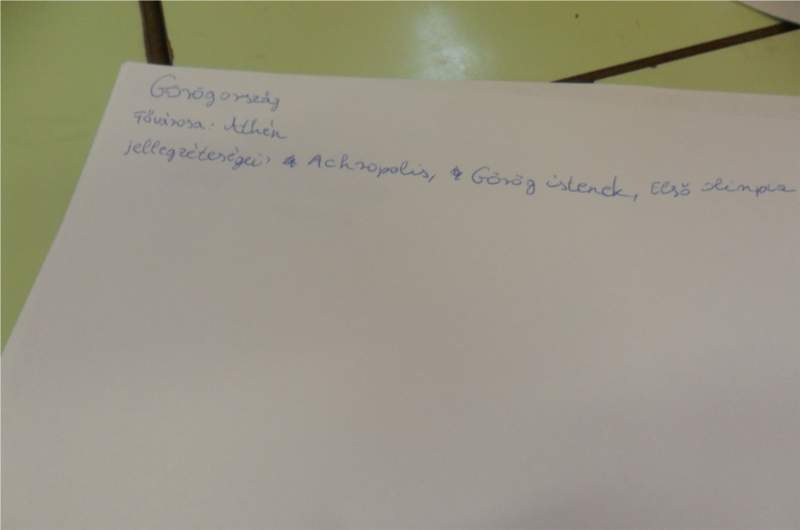 Görögország
Fővárosa: Athén
jellegzéteségei: Achropolis, Görög istenek, Első olimpia